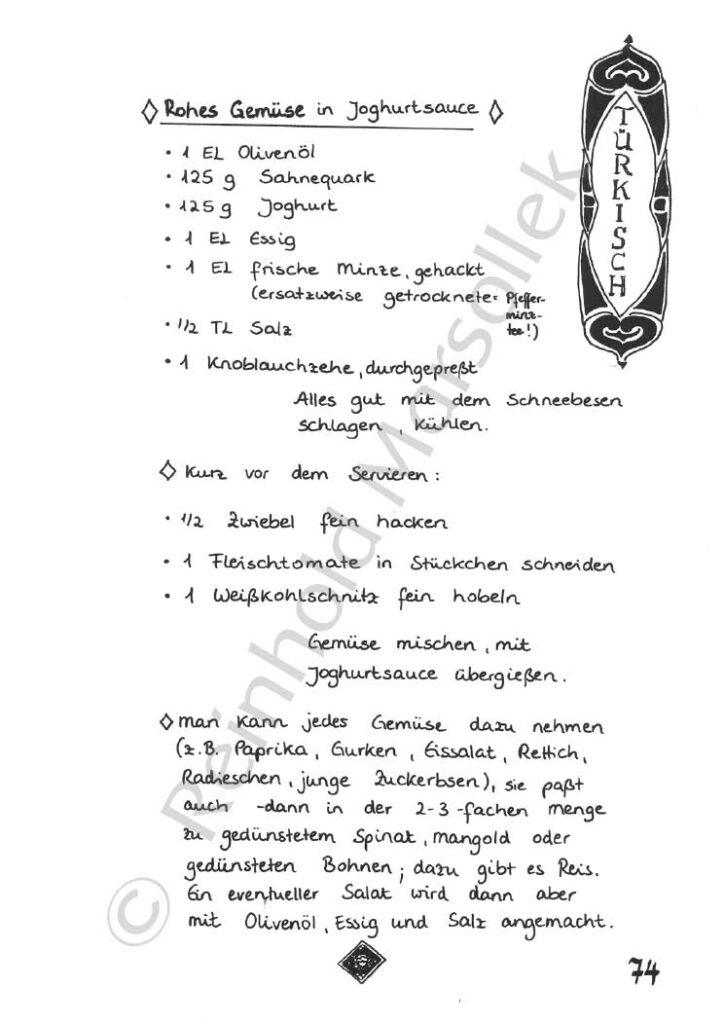 ◊ Rohes Gemüse in Joghurtsauce ◊
TÜRKISCH
• 1 EL Olivenöl
• 125 g Sahnequark
• 125 g Joghurt
• 1 EL Essig
• 1 EL frische Minze, gehackt
(ersatzweise getrocknete = Pfeffer-
minz-
tee!)
• 1/2 TL Salz
• 1 Knoblauchzehe, durchgepreßt
Alles gut mit dem Schneebesen
schlagen, kühlen.
◊ Kurz vor dem Servieren:
• 1/2 Zwiebel fein hacken
• 1 Fleischtomate in Stückchen schneiden
• 1 Weißkohlschnitz fein hobeln
Gemüse mischen, mit
Joghurtsauce übergießen.
◊ Man kann jedes Gemüse dazu nehmen
(z.B. Paprika, Gurken, Eissalat, Rettich,
Radieschen, junge Zuckerbsen), sie paßt
auch -dann in der 2-3-fachen Menge
zu gedünstetem Spinat, Mangold oder
gedünsteten Bohnen; dazu gibt es Reis.
Ein eventueller Salat wird dann aber
mit Olivenöl, Essig und Salz angemacht.
74
© Reinhold Marsollek